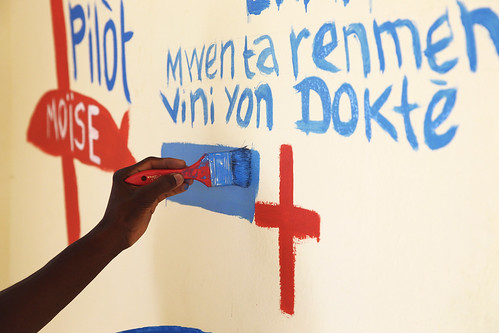 Pilòt
MOÏSE
Mwen ta renmen
vini yon Doktè